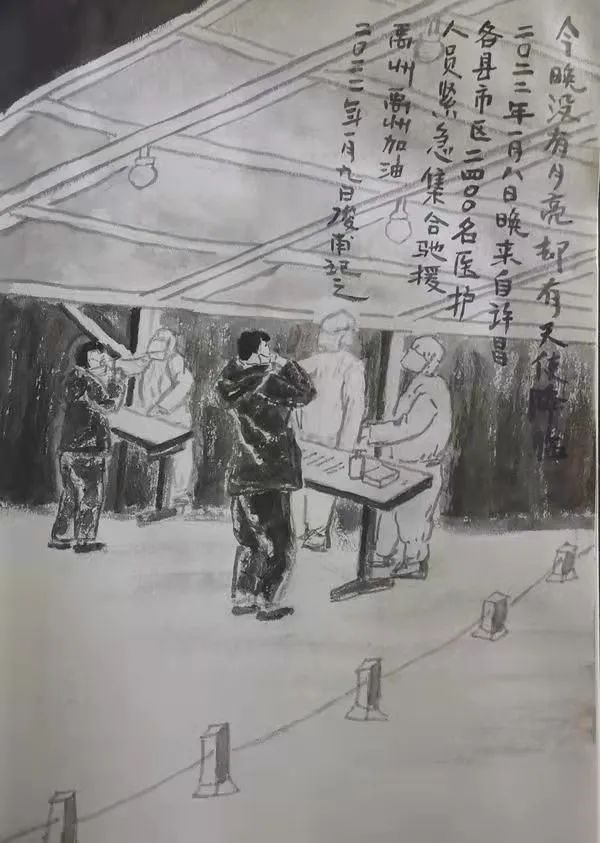 今晚没有月亮却有天使降临
二〇二二年一月八日晚来自许昌
各县市区二四〇〇名医护
人员紧急集合驰援
禹州禹州加油
二〇二二年一月九日俊甫记之